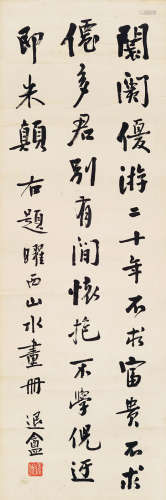 闤闠優游二十年不求富貴不求
僊多君別有閒懷抱不學倪迂
即米顛 右題曜西山水畫冊 退盦